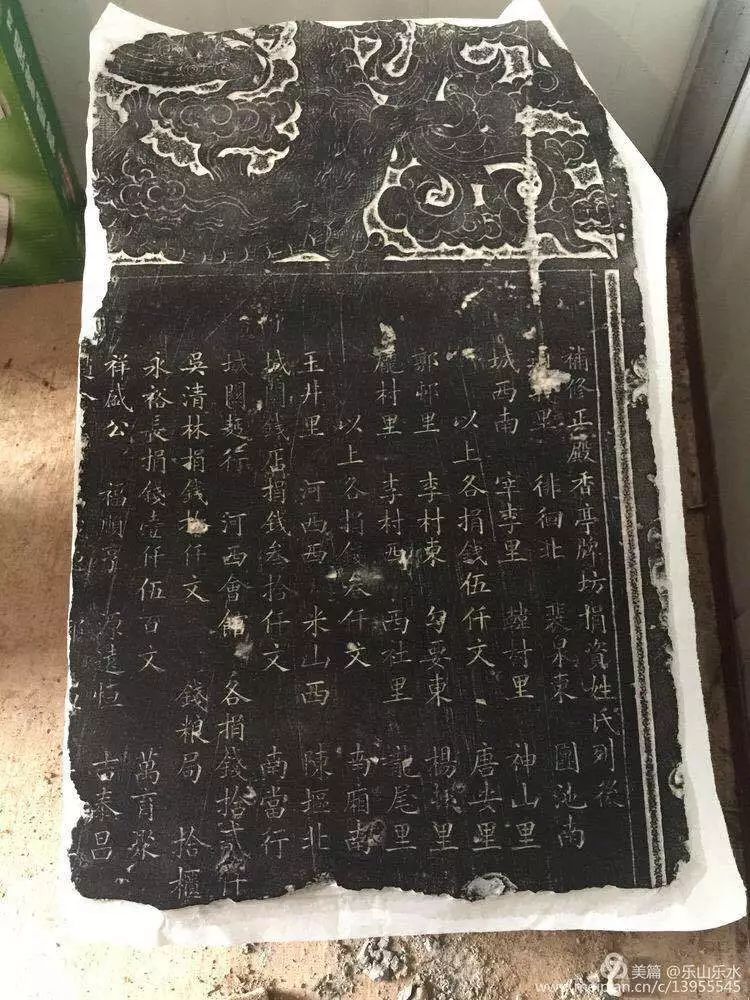 補修正殿香亭牌坊捐資姓氏列後
里 徘徊北 裴泉東 團池南
城西南 宰李里 魯村里 神山里
以上各捐錢伍仟文 唐安里
郭邨里 李村東 勾要東 楊村里
龐村里 李村西 西社里 龍尾里
以上各捐錢叁仟文 南廂南
玉井里 河西西 米山西 陳㨷北
城關錢店捐錢叁拾仟文 南當行
城關麵行 河西會館 各捐錢拾貳仟
吳清林捐錢拾仟文 錢粮局 拾櫃
永裕長捐錢壹仟伍百文 萬育聚
祥盛公 福順亨 源遠恒 吉泰昌
美篇 @乐山乐水
www.meipian.cn/c/13955545